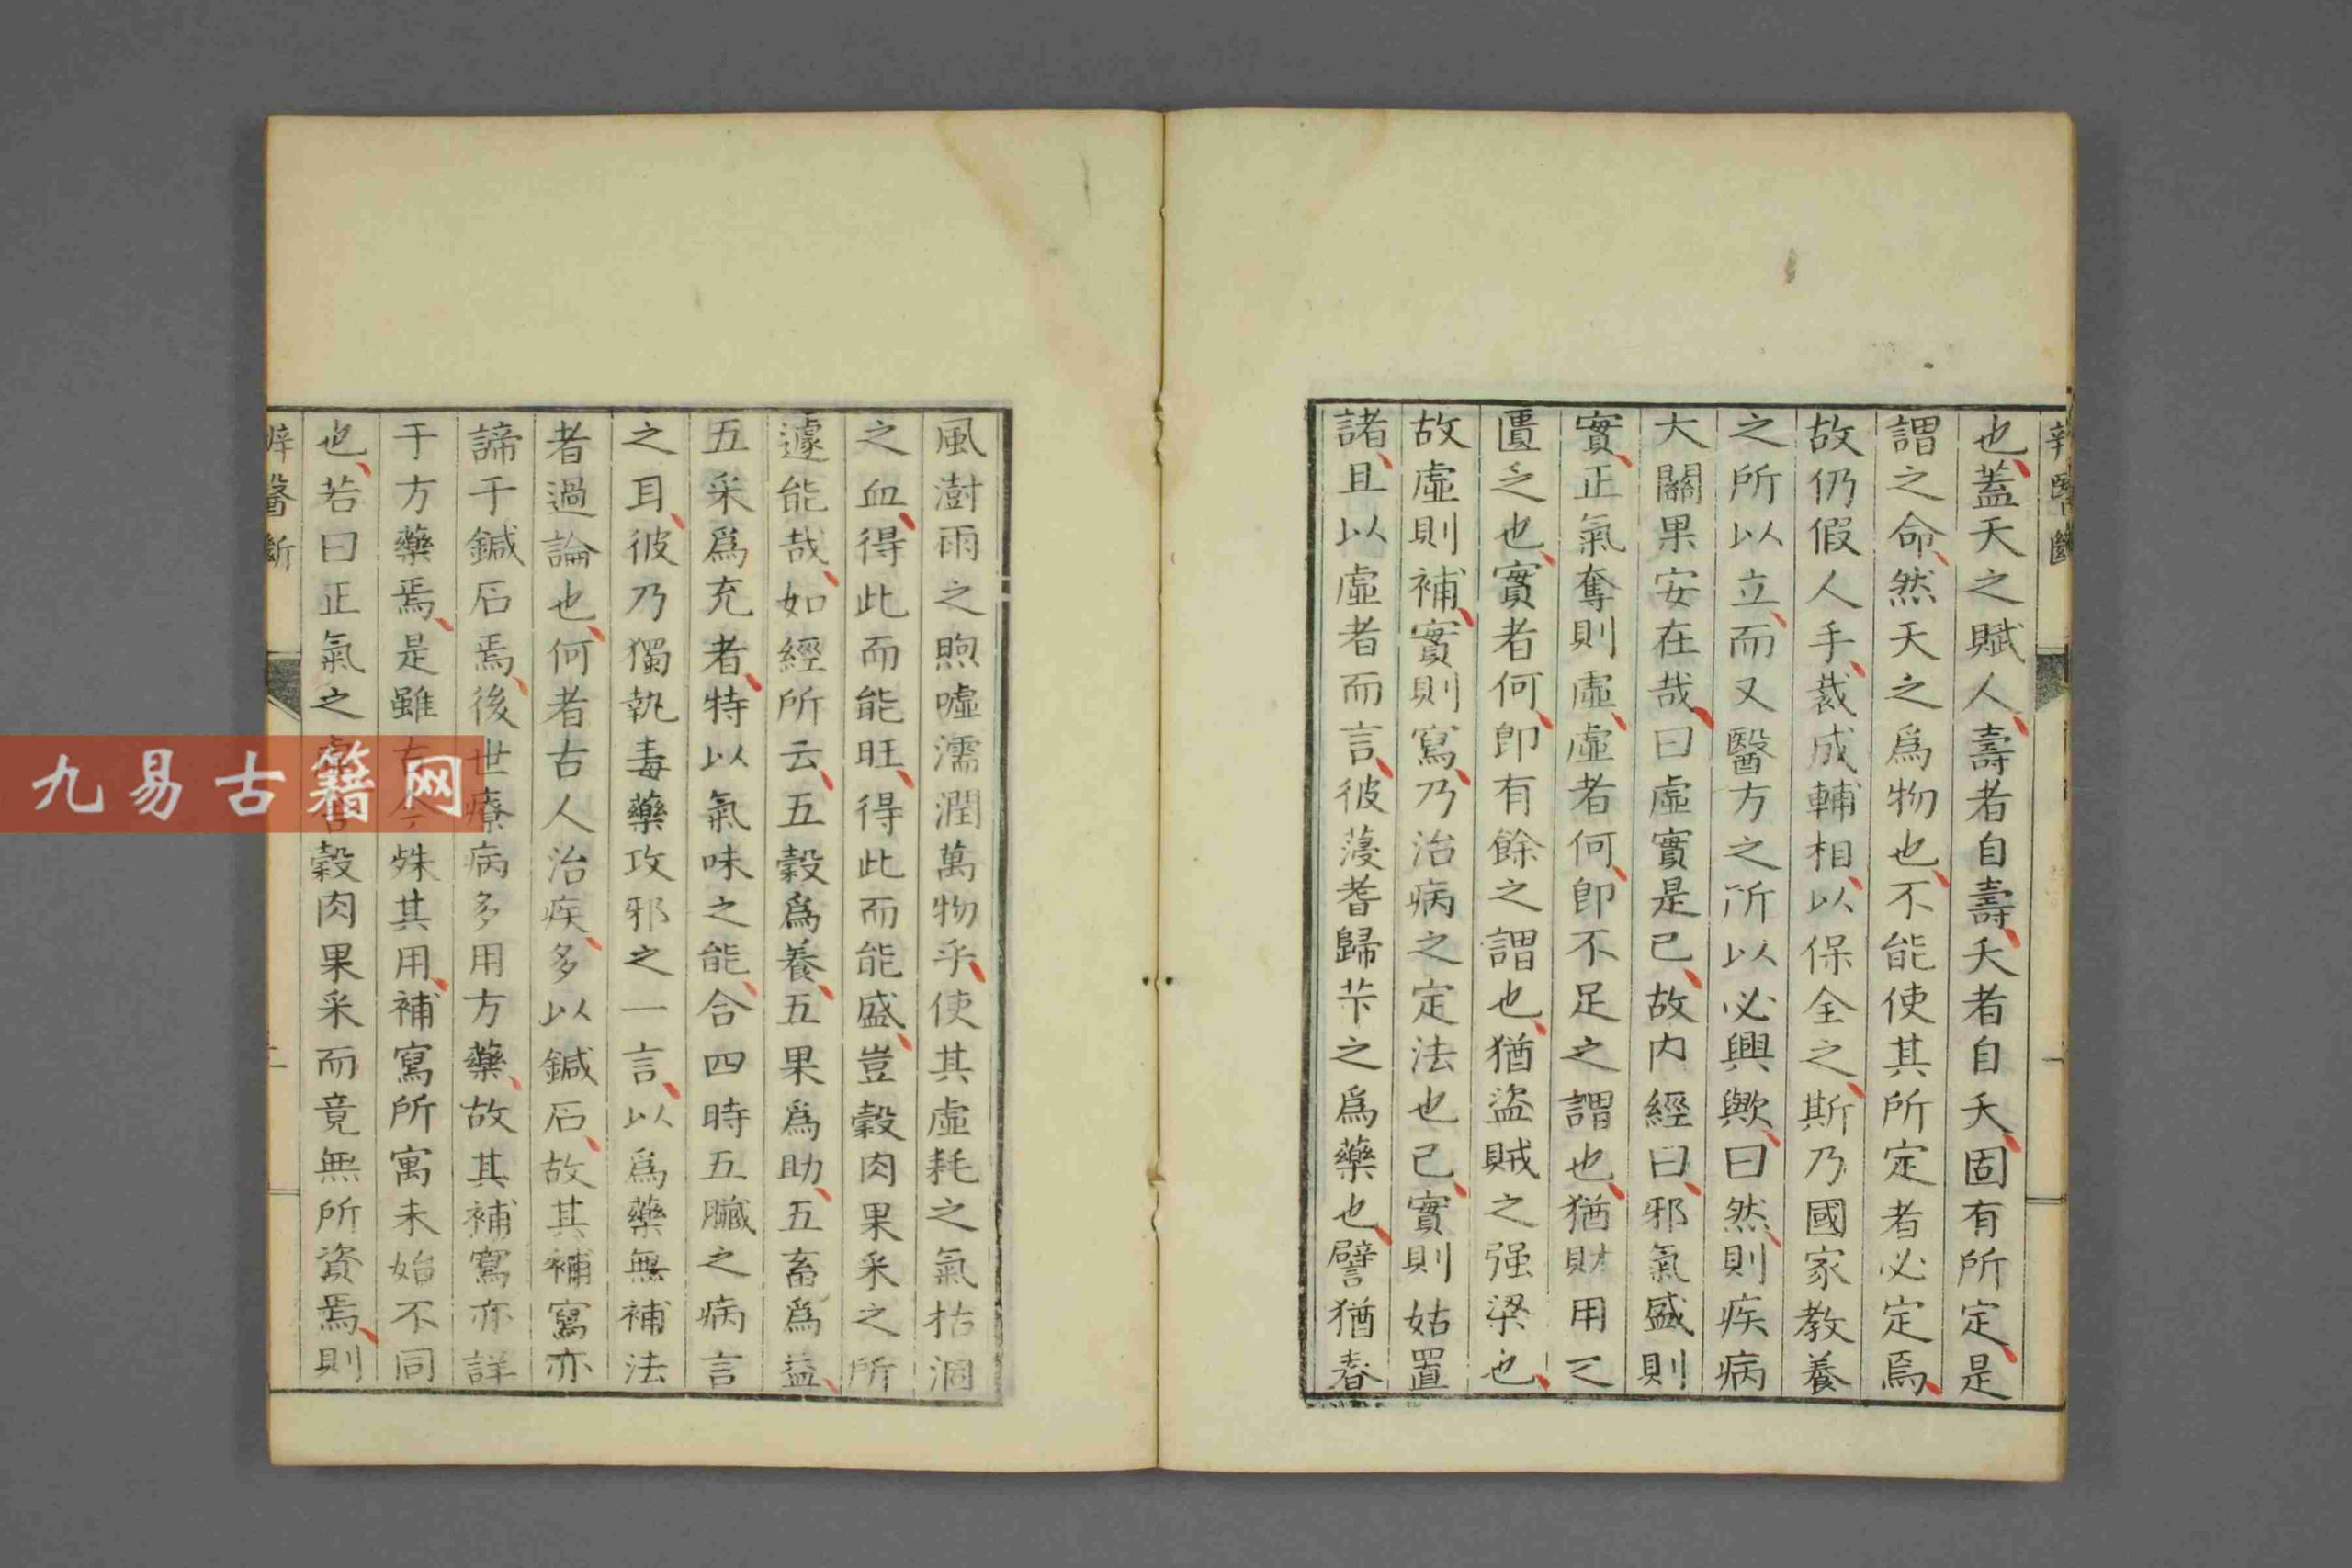 也蓋天之賦人壽者自壽夭者自夭固有所定是
謂之命然天之爲物也不能使其所定者必定焉
故仍假人手裁成輔相以保全之斯乃國家教養
之所以立而又醫方之所以必興歟曰然則疾病
大關果安在哉曰虛實是已故内經曰邪氣盛則
實正氣奪則虛虛者何即不足之謂也猶財用之
匱乏也實者何即有餘之謂也猶盜賊之强梁也
故虛則補實則寫乃治病之定法也已實則姑置
諸且以虛者而言彼薓蓍歸芐之爲藥也譬猶春
風澍雨之煦嘘濡潤萬物乎使其虛耗之氣枯涸
之血得此而能旺得此而能盛豈穀肉果采之所
遽能哉如經所云五穀爲養五果爲助五畜爲益
五采爲充者特以氣味之能合四時五臟之病言
之耳彼乃獨執毒藥攻邪之一言以爲藥無補法
者過論也何者古人治疾多以鍼石故其補寫亦
諦于鍼石焉後世療病多用方藥故其補寫亦詳
于方藥焉是雖古今殊其用補寫所寓未始不同
也若曰正氣之虛舍穀肉果采而竟無所資焉則
辨醫斷
九易古籍网